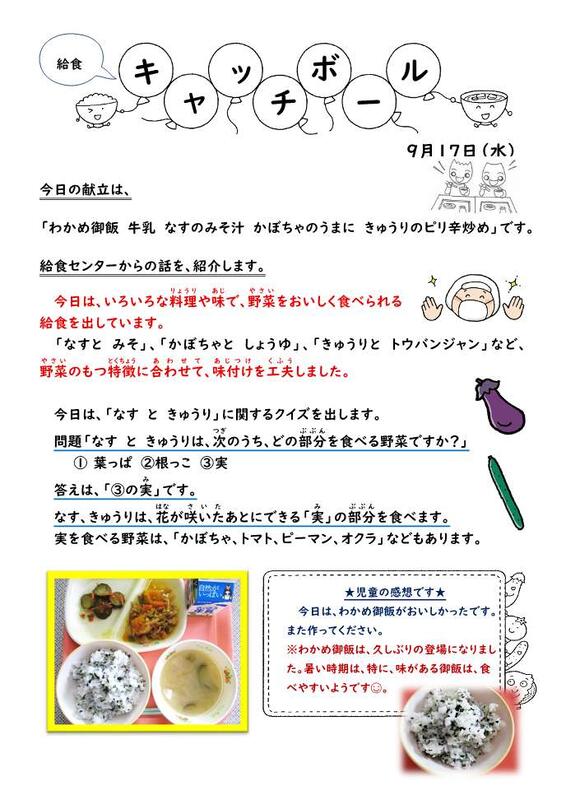 給食
キャッチボール
9月17日(水)
今日の献立は、
「わかめ御飯 牛乳 なすのみそ汁 かぼちゃのうまに きゅうりのピリ辛炒め」です。
給食センターからの話を、紹介します。
今日は、いろいろな料理や味で、野菜をおいしく食べられる
給食を出しています。
「なすと みそ」、「かぼちゃと しょうゆ」、「きゅうりと トウバンジャン」など、
野菜のもつ特徴に合わせて、味付けを工夫しました。
今日は、「なす と きゅうり」に関するクイズを出します。
問題「なす と きゅうりは、次のうち、どの部分を食べる野菜ですか?」
① 葉っぱ ②根っこ ③実
答えは、「③の実」です。
なす、きゅうりは、花が咲いたあとにできる「実」の部分を食べます。
実を食べる野菜は、「かぼちゃ、トマト、ピーマン、オクラ」などもあります。
★児童の感想です★
今日は、わかめ御飯がおいしかったです。
また作ってください。
※わかめ御飯は、久しぶりの登場になりまし
た。暑い時期は、特に、味がある御飯は、食
べやすいようです☺。